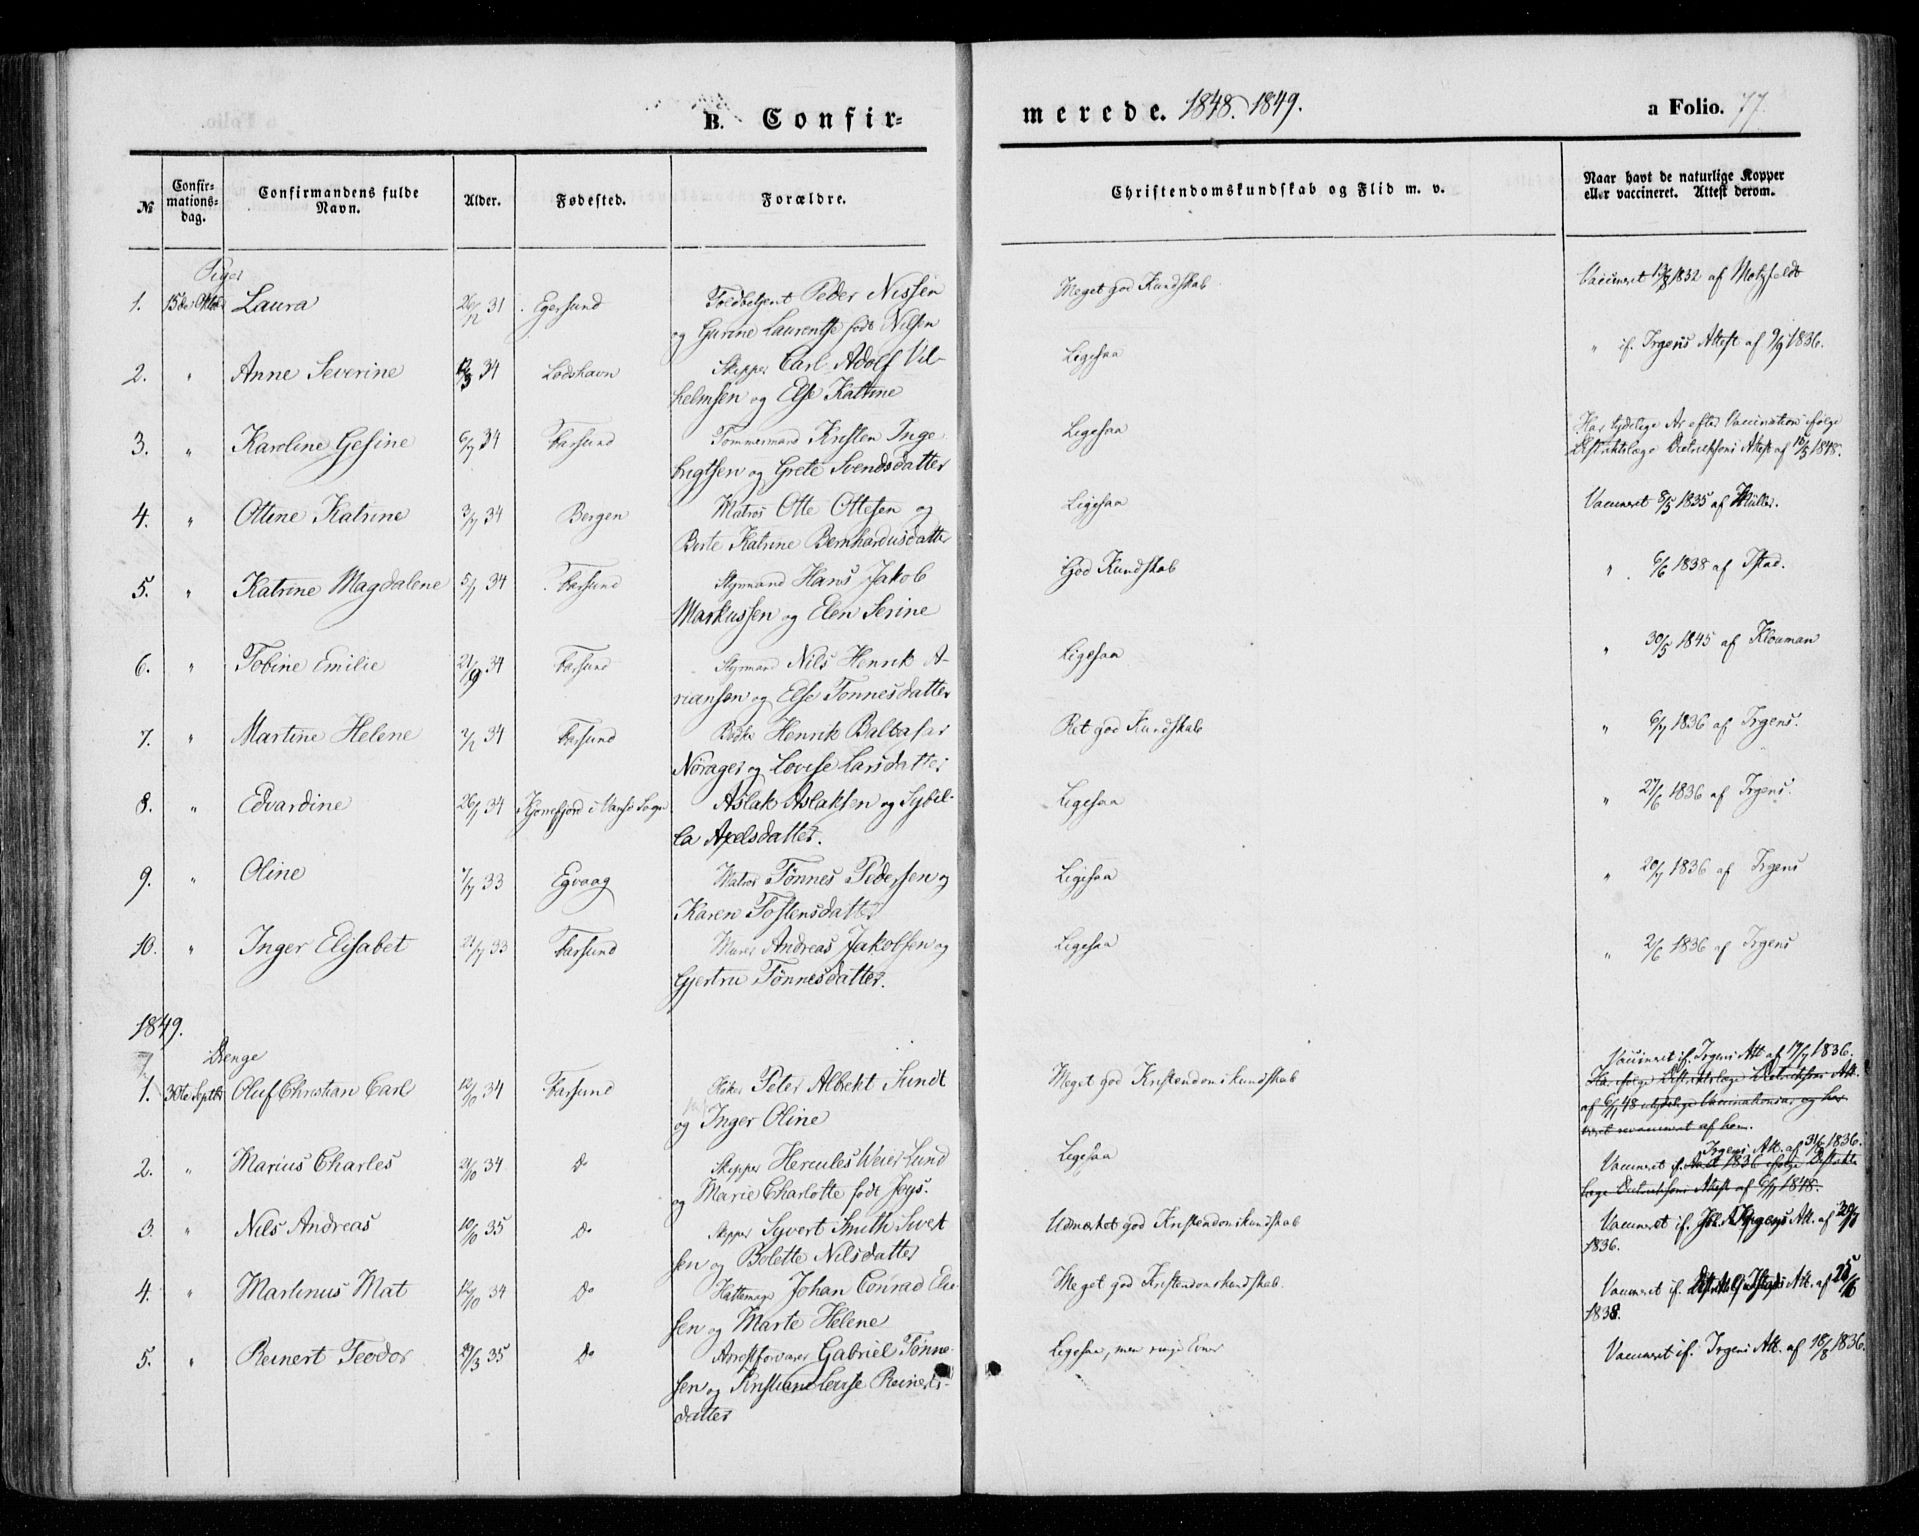 B. Confir=
merede. 1848. 1849.
a Folio. 77.
№
Confir-
mations-
dag.
Confirmandens fulde
Navn.
Alder.
Fødested.
Forældre.
Christendomskundskab og Flid m. v.
Naar havt de naturlige Kopper
eller vaccineret. Attest derom.
Piger
1. 15de Oktbr Laura 26/12 31 Egersund Toldbetjent Peder Nissen
og Gurine Laurentse født Nilsen
Meget god Kundskab
Vaccineret 1832 af Motzfeldt
2. " Anne Severine 34 Lodshavn Skipper Carl Adolf Vil-
helmsen og Else Katrine
Ligesaa
" if. Irgens Attest af 9/9 1836.
3. " Karoline Gesine 6/7 34 Farsund Tømmermand Kristen Inge
brigtsen og Grete Svendsdatter
Ligesaa
Har tydelige Ar efter Vaccination ifølge
Distriktslæge Diderikson's Attest af 15/5 1848.
4. " Ottine Katrine 3/7 34 Bergen Matros Otte Ottesen og
Berte Katrine Bernhardusdatter
Ligesaa
Vaccineret 8/5 1835 af Müller.
5. " Katrine Magdalene 5/1 34 Farsund Styrmand Hans Jakob
Markussen og Elen Serine
God Kundskab
" 6/6 1838 af Istad.
6. " Tobine Emilie 21/9 34 Farsund Styrmand Nils Henrik A-
riansen og Else Tønnesdatter
Ligesaa
" 30/5 1845 af Kloumann
7. " Martine Helene 34 Farsund Henrik Baltasar
Nørager og Lovise Larsdatter
Ret god Kundskab
" 6/7 1836 af Irgens.
8. " Edvardine 26/1 34 i Vansø Sogn Aslak Aslaksen og Sybil-
la Axelsdatter.
Ligesaa
" 27/6 1836 af Irgens.
9. " Oline 7/7 33 Egvaag Matros Tønnes Pedersen og
Karen Tostensdatter
Ligesaa
" 20/7 1836 af Irgens
10. " Inger Elisabet 21/7 33 Farsund Murer Andreas Jakobsen og
Gjertru Tønnesdatter.
Ligesaa
" 2/6 1836 af Irgens
1849.
Drenge
Vaccineret if. Irgens Att. af 19/7 1836.
1. 30te Septbr Oluf Christian Carl 12/10 34 Farsund Peter Albekt Sundt
og Inger Oline
Meget god Kristendomskundskab
Har ifølge Distriktslæge Diderikson's Att.
af 6/7 48 tydelige Vaccinationsar og her
været revaccineret af ham.
2. " Marius Charles 21/10 34 Do Skipper Hercules Weier Lund
og Marie Charlotte født Jeys.
Ligesaa
Irgens Att. af 31/8 1836.
Vaccineret if. Aaret 1836 ifølge Distrikts
læge Diderikson's Attest af 6/7 1848.
3. " Nils Andreas 10/10 35 Do Skipper Syvert Smith Sivert
sen og Bolette Nilsdatter
Udmærket god Kristendomskundskab
Vaccineret if. Irgens Att. af
1836.
4. " Martinus Mat 12/10 34 Do Hattemager Johan Conrad
sen og Marte Helene
Meget god Kristendomskundskab.
Vaccineret if. Istads Att. af 25/6
1838.
5. " Reinert Teodor 29/3 35 Do Arrestforvarer Gabriel Tønne-
sen og Kristiane Lovise Reinerts-
datter
Ligesaa, men ringe Evner
Vaccineret if. Irgens Att. af 18/8 1836.